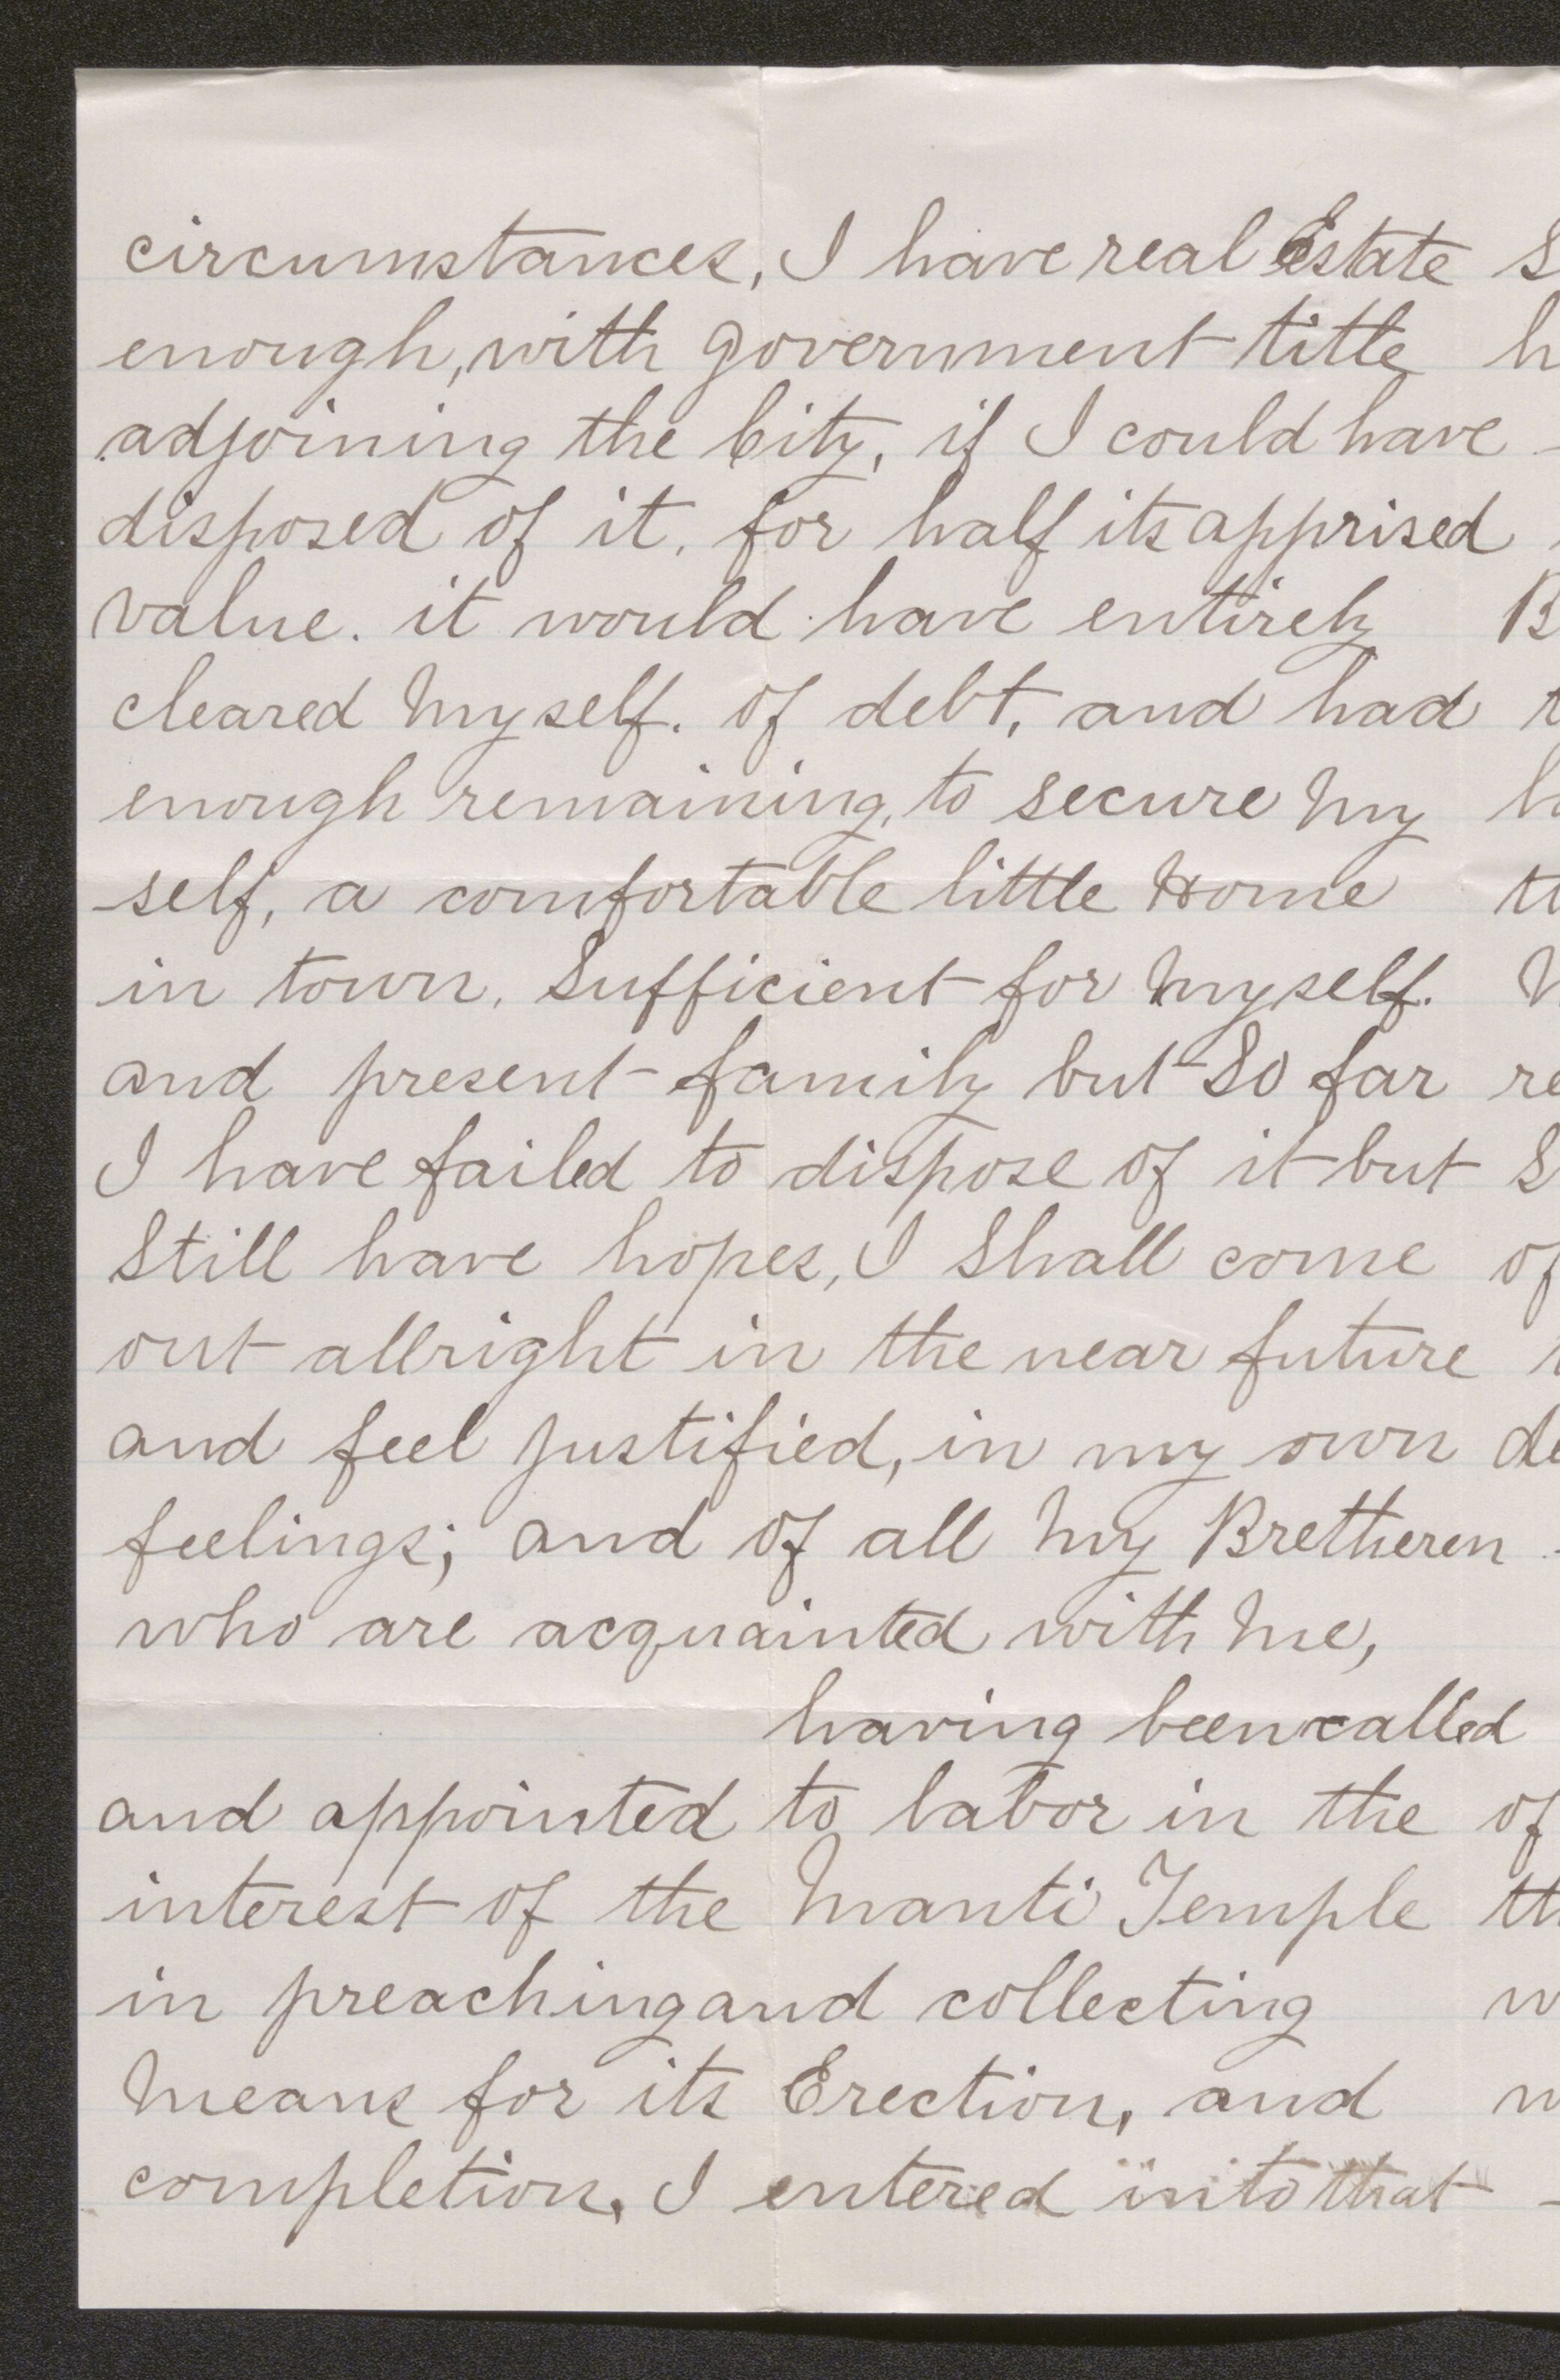 circumstances, I have real Estate
enough, with government title
adjoining the City, if I could have
disposed of it, for half its apprised
value. it would have entirely
cleared myself. of debt, and had
enough remaining, to secure my
self, a comfortable little Home
in town. Sufficient for myself.
and present family but So far
I have failed to dispose of it but
Still have hopes, I Shall come
out allright in the near future
and feel justified, in my own
feelings; and of all my Bretheren
who are acquainted with me,
having been called
and appointed to labor in the
interest of the Manti Temple
in preaching and collecting
means for its Erection, and
completion, I entered into that